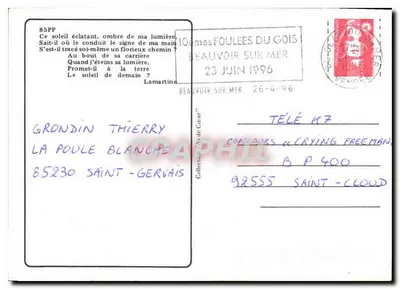 85PP
Ce soleil éclatant, ombre de ma lumière,
Sait-il où le conduit le signe de ma main
S'est-il tracé soi-même un glorieux chemin ?
Au bout de sa carrière
Quand j'éteins sa lumière,
Promet-il à la terre
Le soleil de demain ?
Lamartine
10èmes FOULEES DU GOIS
BEAUVOIR SUR MER
23 JUIN 1996
BEAUVOIR SUR MER 26-4-96
GRONDIN THIERRY
LA POULE BLANCHE
85230 SAINT-GERVAIS
TÉLÉ K7
CONCOURS "CRYING FREEMAN
B P 400
92555 SAINT-CLOUD